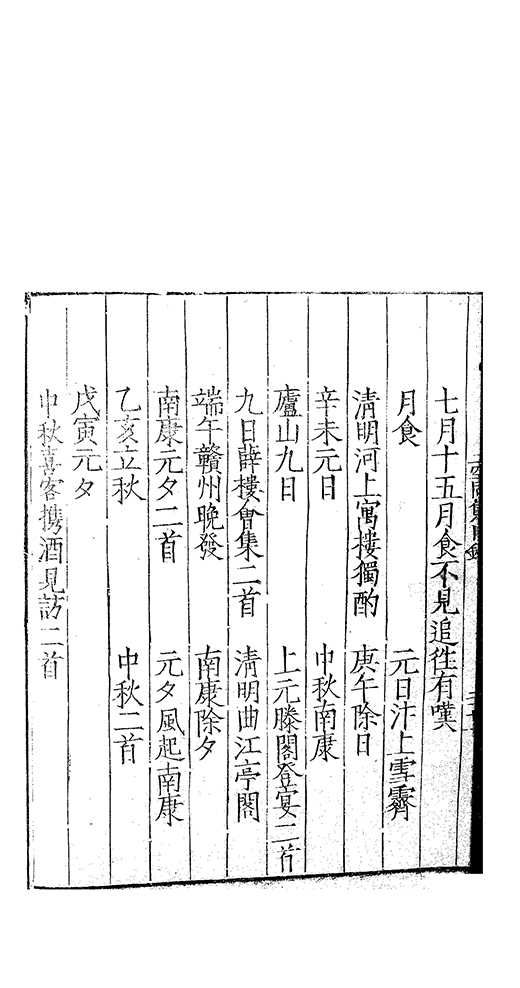 七月十五月食不見追徃有嘆
月食　元日汴上雪霽
淸明河上寓樓獨酌　庚午除日
辛未元日　中秋南康
廬山九日　上元滕閣登宴二首
九日薛樓會集二首　淸明曲江亭閣
端午贛州晚發　南康除夕
南康元夕二首　元夕風起南康
乙亥立秋　中秋二首
戊寅元夕
中秋喜客携酒見訪二首